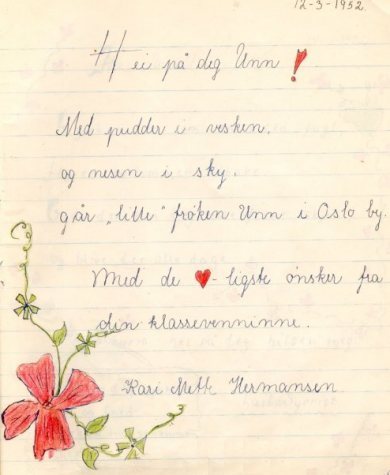 12-3-1952
Hei på deg Unn !
Med pudder i vesken,
og nesen i sky.
går „lille“ frøken Unn i Oslo by.
Med de ♥-ligste ønsker fra
din klassevenninne.
Kari Mette Hermansen